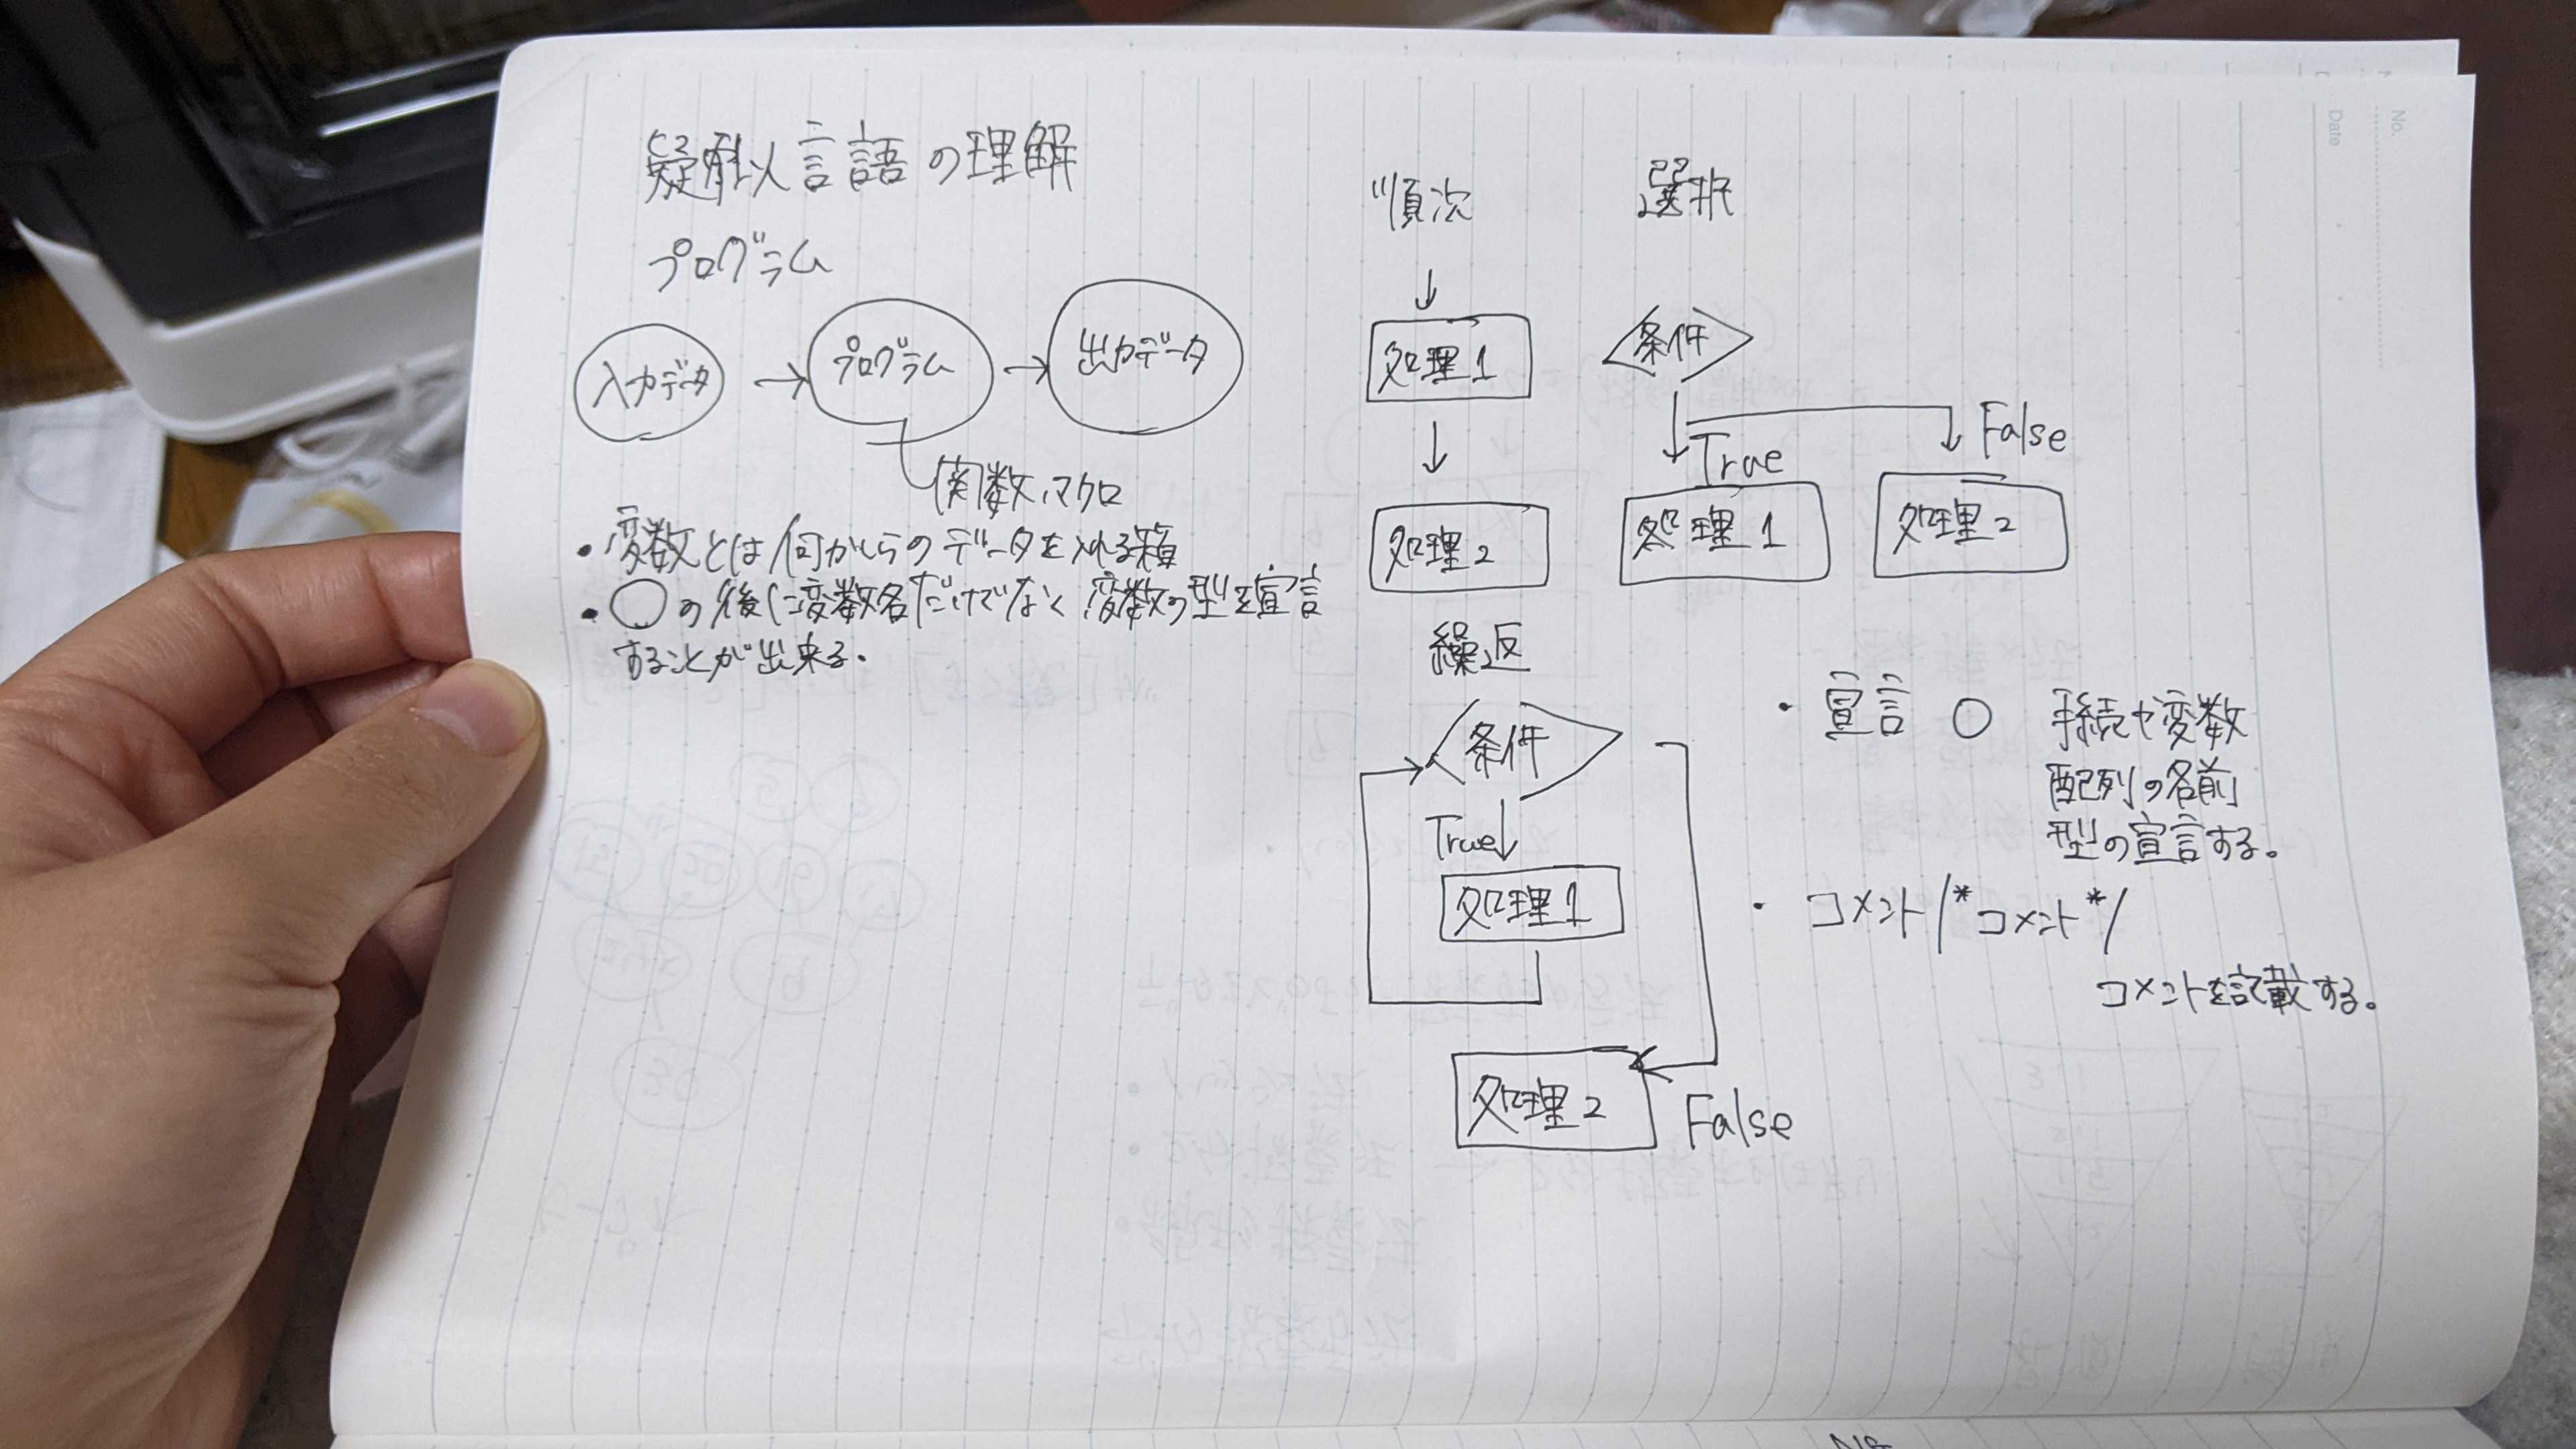 疑似言語の理解
プログラム
入力データ → プログラム → 出力データ
関数、マクロ
・変数とは何かしらのデータを入れる箱
・○の後に変数名だけでなく変数の型を宣言
することが出来る。
順次
↓
処理1
↓
処理2
選択
条件
True
False
処理1
処理2
繰返
条件
True↓
処理1
処理2
False
・宣言 ○ 手続や変数
配列の名前
型の宣言する。
・コメント/*コメント*/
コメントを記載する。
No.
Date